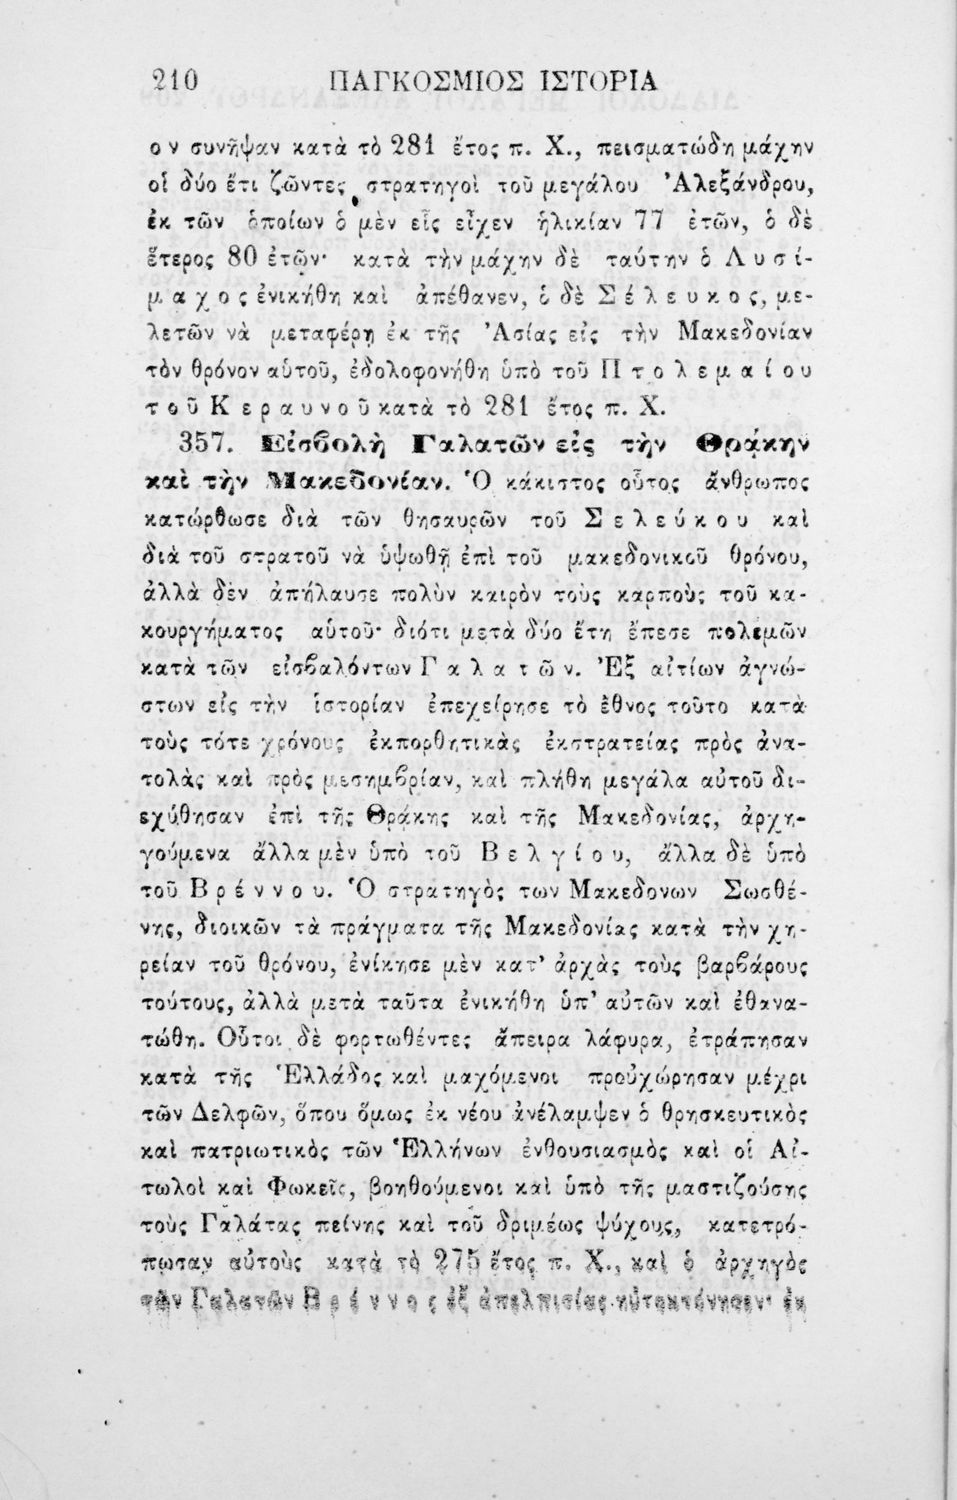 210 ΠΑΓΚΟΣΜΙΟΣ ΙΣΤΟΡΙΑ
ο ν συνῆψαν κατὰ τὸ 281 ἔτος π. Χ., πεισματώδη μάχην
οἱ δύο ἔτι ζῶντες στρατηγοὶ τοῦ μεγάλου Ἀλεξάνδρου,
ἐκ τῶν ὁποίων ὁ μὲν εἷς εἶχεν ἡλικίαν 77 ἐτῶν, ὁ δὲ
ἕτερος 80 ἐτῶν· κατὰ τὴν μάχην δὲ ταύτην ὁ Λ υ σ ί-
μ α χ ο ς ἐνικήθη καὶ ἀπέθανεν, ὁ δὲ Σ έ λ ε υ κ ο ς, με-
λετῶν νὰ μεταφέρῃ ἐκ τῆς Ἀσίας εἰς τὴν Μακεδονίαν
τὸν θρόνον αὑτοῦ, ἐδολοφονήθη ὑπὸ τοῦ Π τ ο λ ε μ α ί ο υ
τ ο ῦ Κ ε ρ α υ ν ο ῦ κατὰ τὸ 281 ἔτος π. Χ.
357. Εἰσβολὴ Γαλατῶν εἰς τὴν Θρᾴκην
καὶ τὴν Μακεδονίαν. Ὁ κάκιστος οὗτος ἄνθρωπος
κατώρθωσε διὰ τῶν θησαυρῶν τοῦ Σ ε λ ε ύ κ ο υ καὶ
διὰ τοῦ στρατοῦ νὰ ὑψωθῇ ἐπὶ τοῦ μακεδονικοῦ θρόνου,
ἀλλὰ δὲν ἀπήλαυσε πολὺν καιρὸν τοὺς καρποὺς τοῦ κα-
κουργήματος αὑτοῦ· διότι μετὰ δύο ἔτη ἔπεσε πολεμῶν
κατὰ τῶν εἰσβαλόντων Γ α λ α τ ῶ ν. Ἐξ αἰτίων ἀγνώ-
στων εἰς τὴν ἱστορίαν ἐπεχείρησε τὸ ἔθνος τοῦτο κατὰ
τοὺς τότε χρόνους ἐκπορθητικὰς ἐκστρατείας πρὸς ἀνα-
τολὰς καὶ πρὸς μεσημβρίαν, καὶ πλήθη μεγάλα αὐτοῦ δι-
εχύθησαν ἐπὶ τῆς Θρᾴκης καὶ τῆς Μακεδονίας, ἀρχη-
γούμενα ἄλλα μὲν ὑπὸ τοῦ Β ε λ γ ί ο υ, ἄλλα δὲ ὑπὸ
τοῦ Β ρ έ ν ν ο υ. Ὁ στρατηγὸς των Μακεδονων Σωσθέ-
νης, διοικῶν τὰ πράγματα τῆς Μακεδονίας κατὰ τὴν χη-
ρείαν τοῦ θρόνου, ἐνίκησε μὲν κατ' ἀρχὰς τοὺς βαρβάρους
τούτους, ἀλλὰ μετὰ ταῦτα ἐνικήθη ὑπ' αὐτῶν καὶ ἐθανα-
τώθη. Οὗτοι δὲ φορτωθέντες ἄπειρα λάφυρα, ἐτράπησαν
κατὰ τῆς Ἑλλάδος καὶ μαχόμενοι προὐχώρησαν μέχρι
τῶν Δελφῶν, ὅπου ὅμως ἐκ νέου ἀνέλαμψεν ὁ θρησκευτικὸς
καὶ πατριωτικὸς τῶν Ἑλλήνων ἐνθουσιασμὸς καὶ οἱ Αἰ-
τωλοὶ καὶ Φωκεῖς, βοηθούμενοι καὶ ὑπὸ τῆς μαστιζούσης
τοὺς Γαλάτας πείνης καὶ τοῦ δριμέως ψύχους, κατετρό-
πωσαν αὐτοὺς κατὰ τὸ 275 ἔτος π. Χ., καὶ ὁ ἀρχηγὸς
τῶν Γαλατῶν Β ρ έ ν ν ο ς ἐξ ἀπελπισίας ηὐτοκτόνησεν· ἐκ